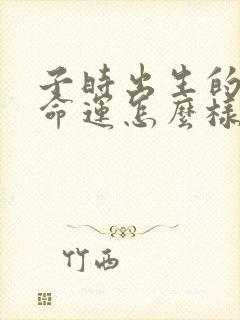 子時出生的
命運怎麼樣
竹西